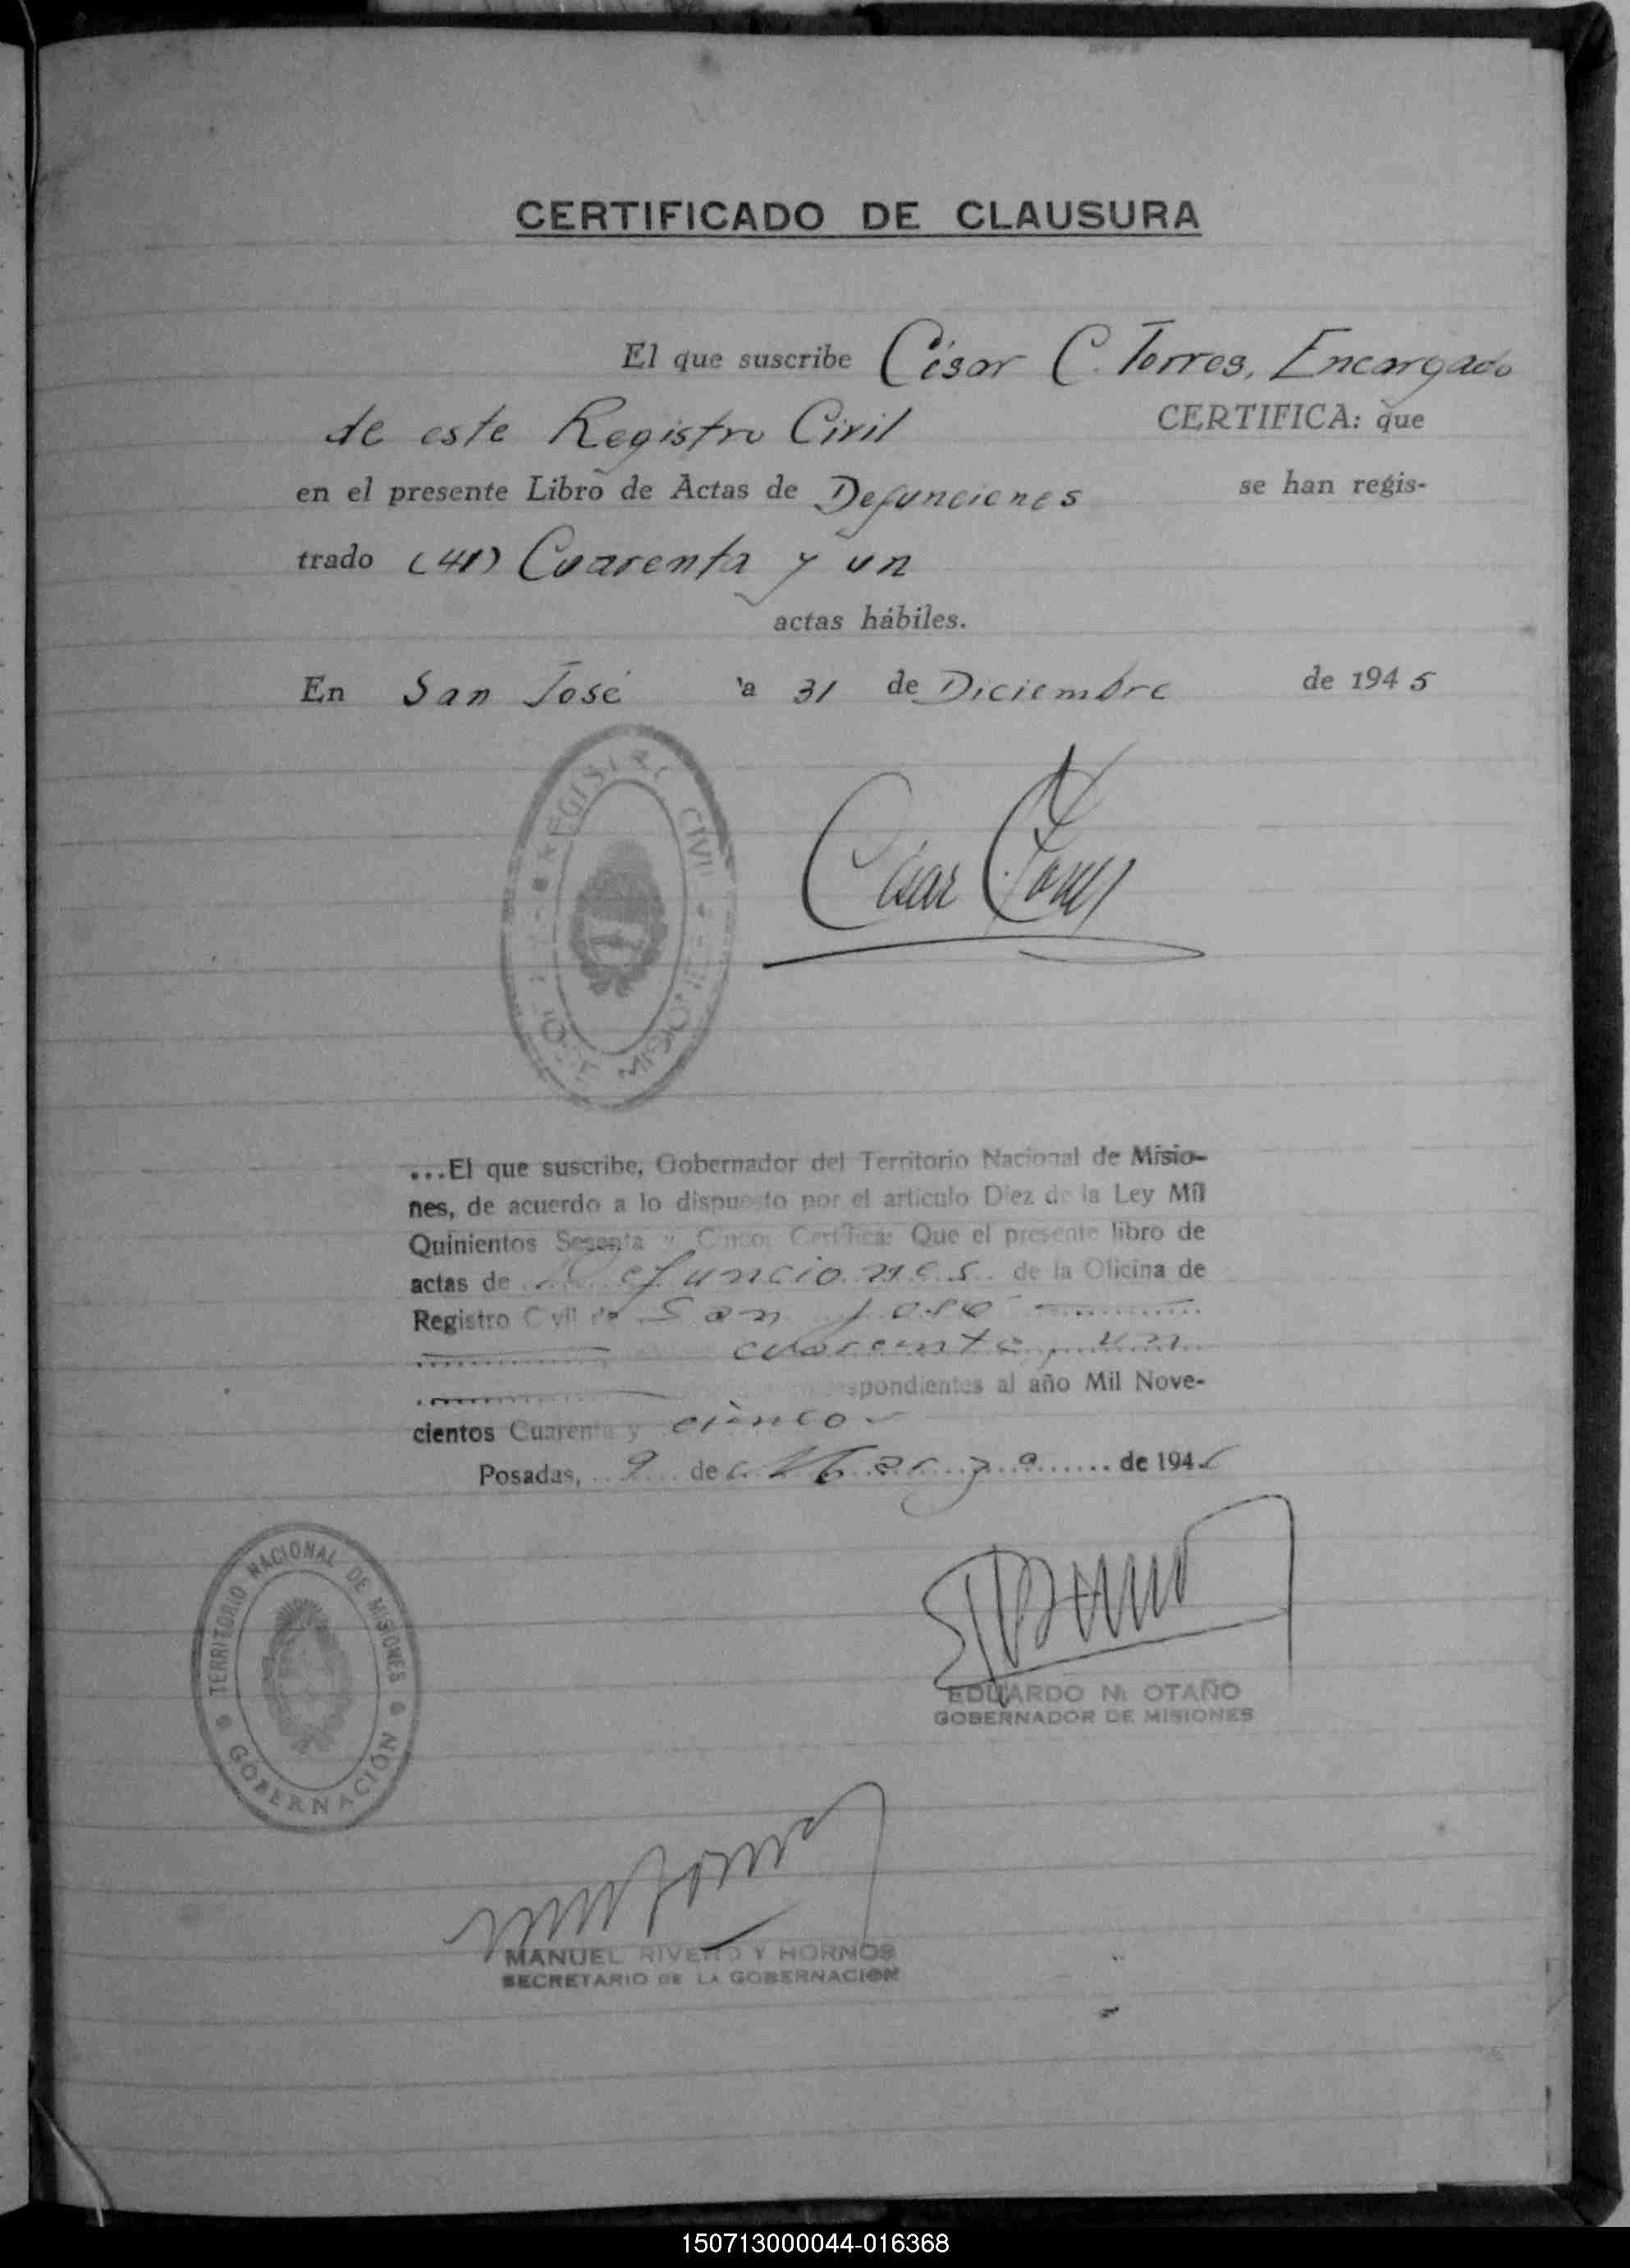 CERTIFICADO DE CLAUSURA
El que suscribe César C. Torres, Encargado
de este Registro Civil CERTIFICA: que
en el presente Libro de Actas de Defunciones se han regis-
trado (41) Cuarenta y un
actas hábiles.
En San José a 31 de Diciembre de 1945
REGISTRO CIVIL
MISIONES
César C. Torres
...El que suscribe, Gobernador del Territorio Nacional de Misio-
nes, de acuerdo a lo dispuesto por el artículo Diez de la Ley Mil
Quinientos Sesenta y Cinco: Certifica: Que el presente libro de
actas de Defunciones de la Oficina de
Registro Civil de San José
cuarenta y un
spondientes al año Mil Nove-
cientos Cuarenta y cinco
Posadas, 9 de Marzo de 1946
TERRITORIO NACIONAL DE MISIONES
GOBERNACIÓN
EDUARDO N. OTAÑO
GOBERNADOR DE MISIONES
MANUEL RIVERO Y HORNOS
SECRETARIO DE LA GOBERNACION
150713000044-016368